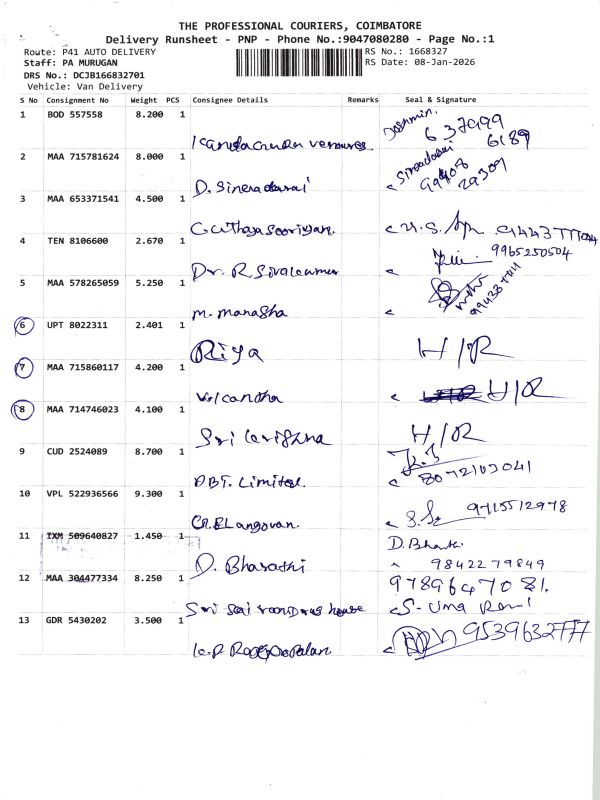 THE PROFESSIONAL COURIERS, COIMBATORE
Delivery Runsheet - PNP - Phone No.:9047080280 - Page No.:1
Route: P41 AUTO DELIVERY
RS No.: 1668327
Staff: PA MURUGAN
RS Date: 08-Jan-2026
DRS No.: DCJB166832701
Vehicle: Van Delivery
S No Consignment No Weight PCS Consignee Details Remarks Seal & Signature
1 BOD 557558 8.200 1
2 MAA 715781624 8.000 1 D.
3 MAA 653371541 4.500 1
4 TEN 8106600 2.670 1 Dr. R. Sivakumar 9965250504
5 MAA 578265059 5.250 1 M. Manasha
6 UPT 8022311 2.401 1 Riya H/R
7 MAA 715860117 4.200 1 H/R
8 MAA 714746023 4.100 1 Sri Krishna H/R
9 CUD 2524089 8.700 1 DBT. Limited. 8072103041
10 VPL 522936566 9.300 1 Elangovan. 9715512978
11 IXM 509640827 1.450 1 D. Bharathi 9842279849
12 MAA 304477334 8.250 1 Sri Sai house 9789647081. S- Uma Rani
13 GDR 5430202 3.500 1 K.P. 9539632777